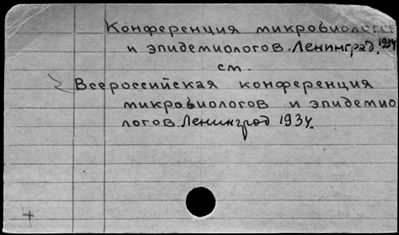 Конференция микробиологов
и эпидемиологов. Ленинград, 1934
см.
Всероссийская конференция
микробиологов и эпидемио
логов. Ленинград 1934.